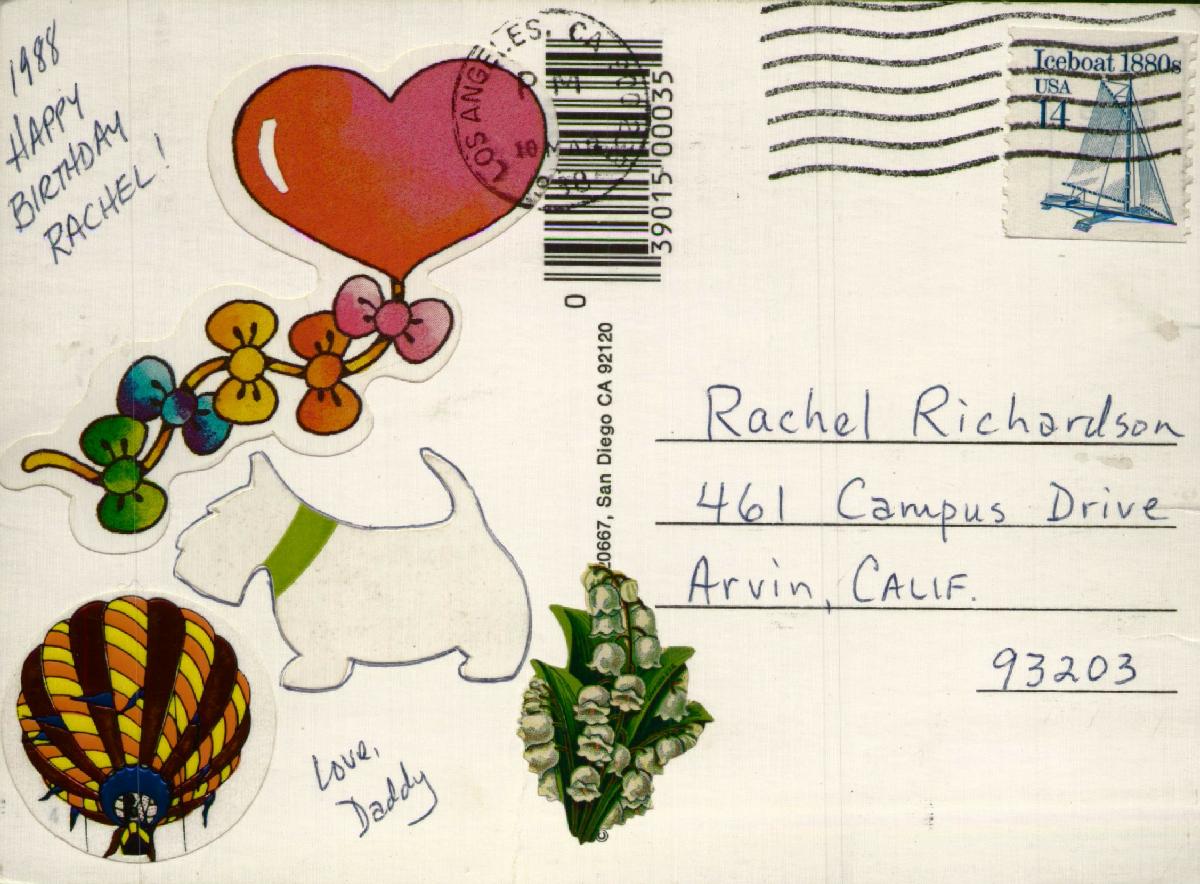 1988
HAPPY
BIRTHDAY
RACHEL!
LOS ANGELES, CA
PM
39015 00035
0
20667, San Diego CA 92120
©
Iceboat 1880s
USA
14
Rachel Richardson
461 Campus Drive
Arvin, CALIF.
93203
Love,
Daddy